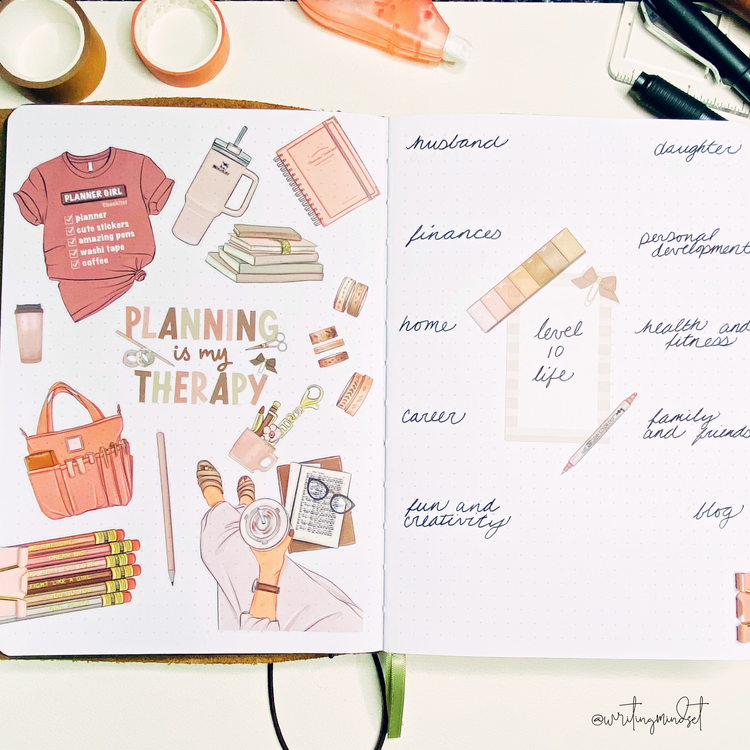 PLANNER GIRL
Checklist
planner
cute stickers
amazing pens
washi tape
coffee
PLANNING
is my
THERAPY
FIGHT LIKE A GIRL
husband
daughter
finances
personal
development
home
level
10
life
health and
fitness
career
family
and friends
fun and
creativity
blog
@writingmindset